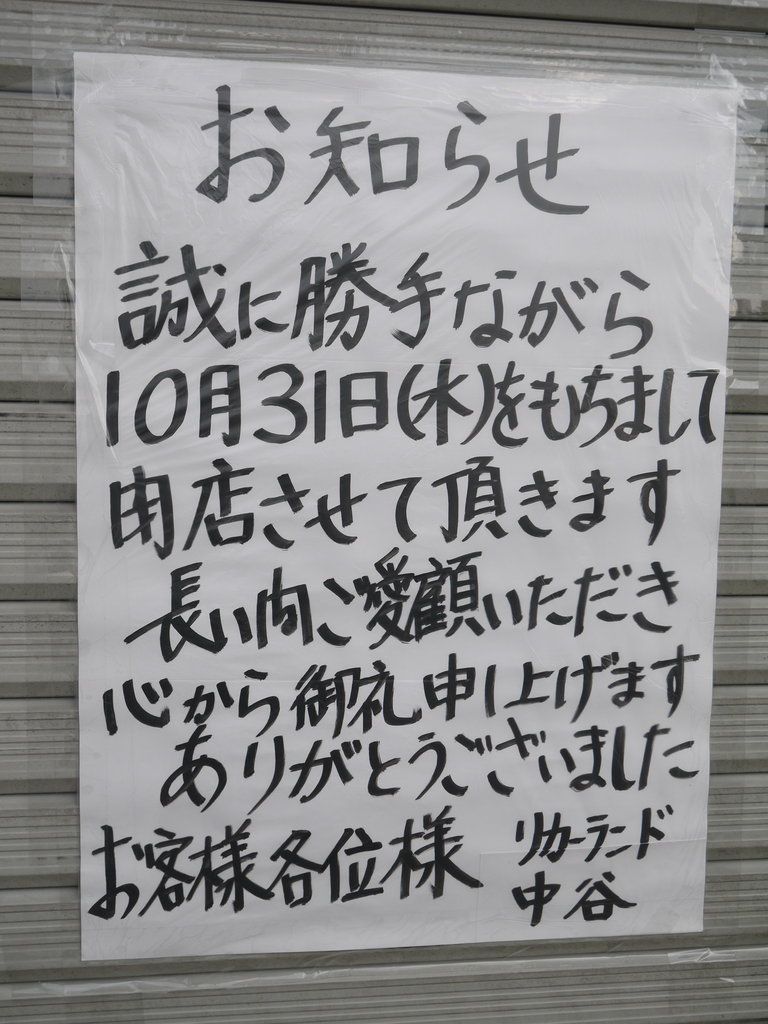 お知らせ
誠に勝手ながら
10月31日(水)をもちまして
閉店させて頂きます
長い間ご愛顧いただき
心から御礼申し上げます
ありがとうございました
お客様各位様
リカーランド
中谷